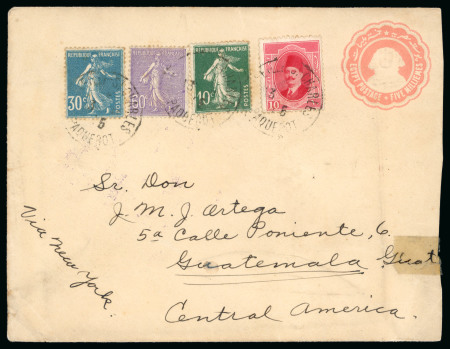 REPUBLIQUE FRANÇAISE
30c
POSTES
REPUBLIQUE FRANÇAISE
POSTES
REPUBLIQUE FRANÇAISE
10c
POSTES
10
EGYPT POSTAGE FIVE MILLIEMES
PAQUEBOT
PAQUEBOT
PAQUEBOT
Sr. Don
J. M. J. Ortega
5a Calle Poniente, 6.
Guatemala Guat
Central America.
Via New York.